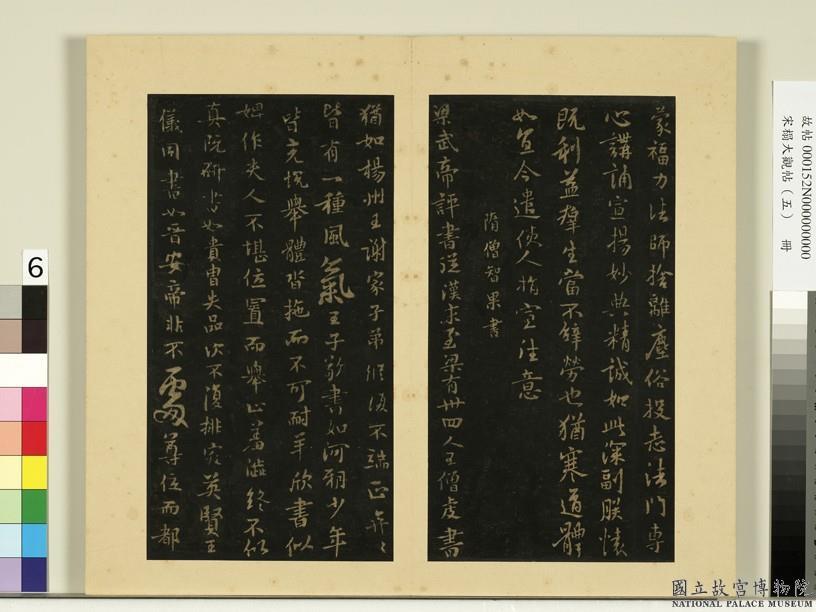 蒙福力法師捨離塵俗投志法門專
心講誦宣揚妙典精誠如此深副朕懷
既利益群生當不辭勞也猶寒道體
如宜今遣使人指宣往意
隋僧智果書
梁武帝評書從漢末至梁有卅四人王僧虔書
猶如楊州王謝家子弟縱復不端正奕々
皆有一種風氣王子敬書如河朔少年
皆充悅舉體沓拖而不可耐羊欣書似
婢作夫人不堪位置而舉止羞澀終不似
真阮研書如貴胄失品次不復排突英賢王
儀同書如晉安帝非不處尊位而都
6
故帖 000152N000000000
宋榻大觀帖（五） 冊
國立故宮博物院
NATIONAL PALACE MUSEUM